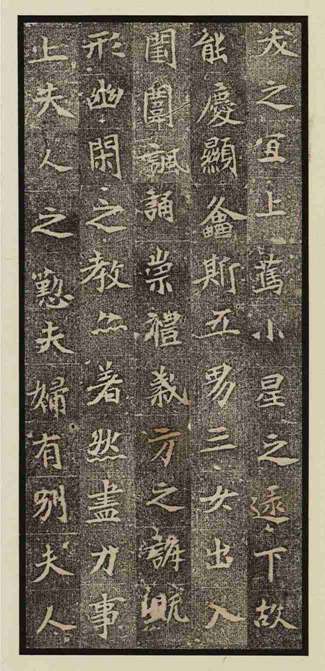 夭之宜上蔦小星之逮下故
能慶顯螽斯五男三女出入
閨闈諷誦崇禮義方之既
形幽閑之教亦著然盡力事
上夫人之懃夫婦有別夫人